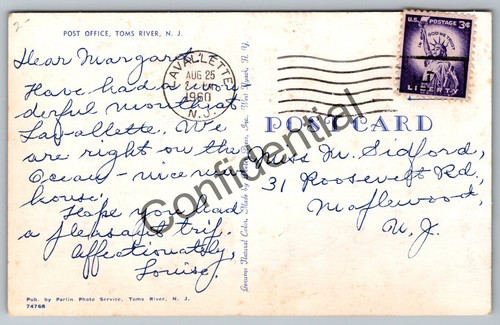 2-
POST OFFICE, TOMS RIVER, N. J.
Dear Margaret,
Have had a won-
derful month at
Lavallette. We
are right on the
Ocean - nice new
house.
Hope you had
a pleasant trip.
Affectionately,
Louise.
Pub. by Parlin Photo Service, Toms River, N. J.
74768
LAVALLETTE
AUG 25
2 PM
1960
N. J.
U.S. POSTAGE 3¢
IN GOD WE TRUST
LIBERTY
POST CARD
Miss M. Sidford,
31 Roosevelt Rd.,
Maplewood,
N. J.
Confidential